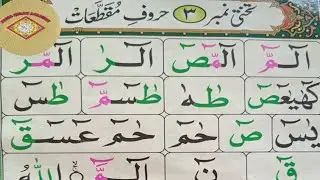 تختی نمبر ۳ حروف مقطعات
الٓمّٓ الٓمّٓصٓ الٓرٰ الٓمّٓرٰ
كٓهٰيٰعٓصٓ طٰهٰ طٰسٓمّٓ طٰسٓ
يٰسٓ صٓ حٰمٓ حٰمٓ عٓسٓقٓ
قٓ نٓ الٓمّٓ اللّٰهُ